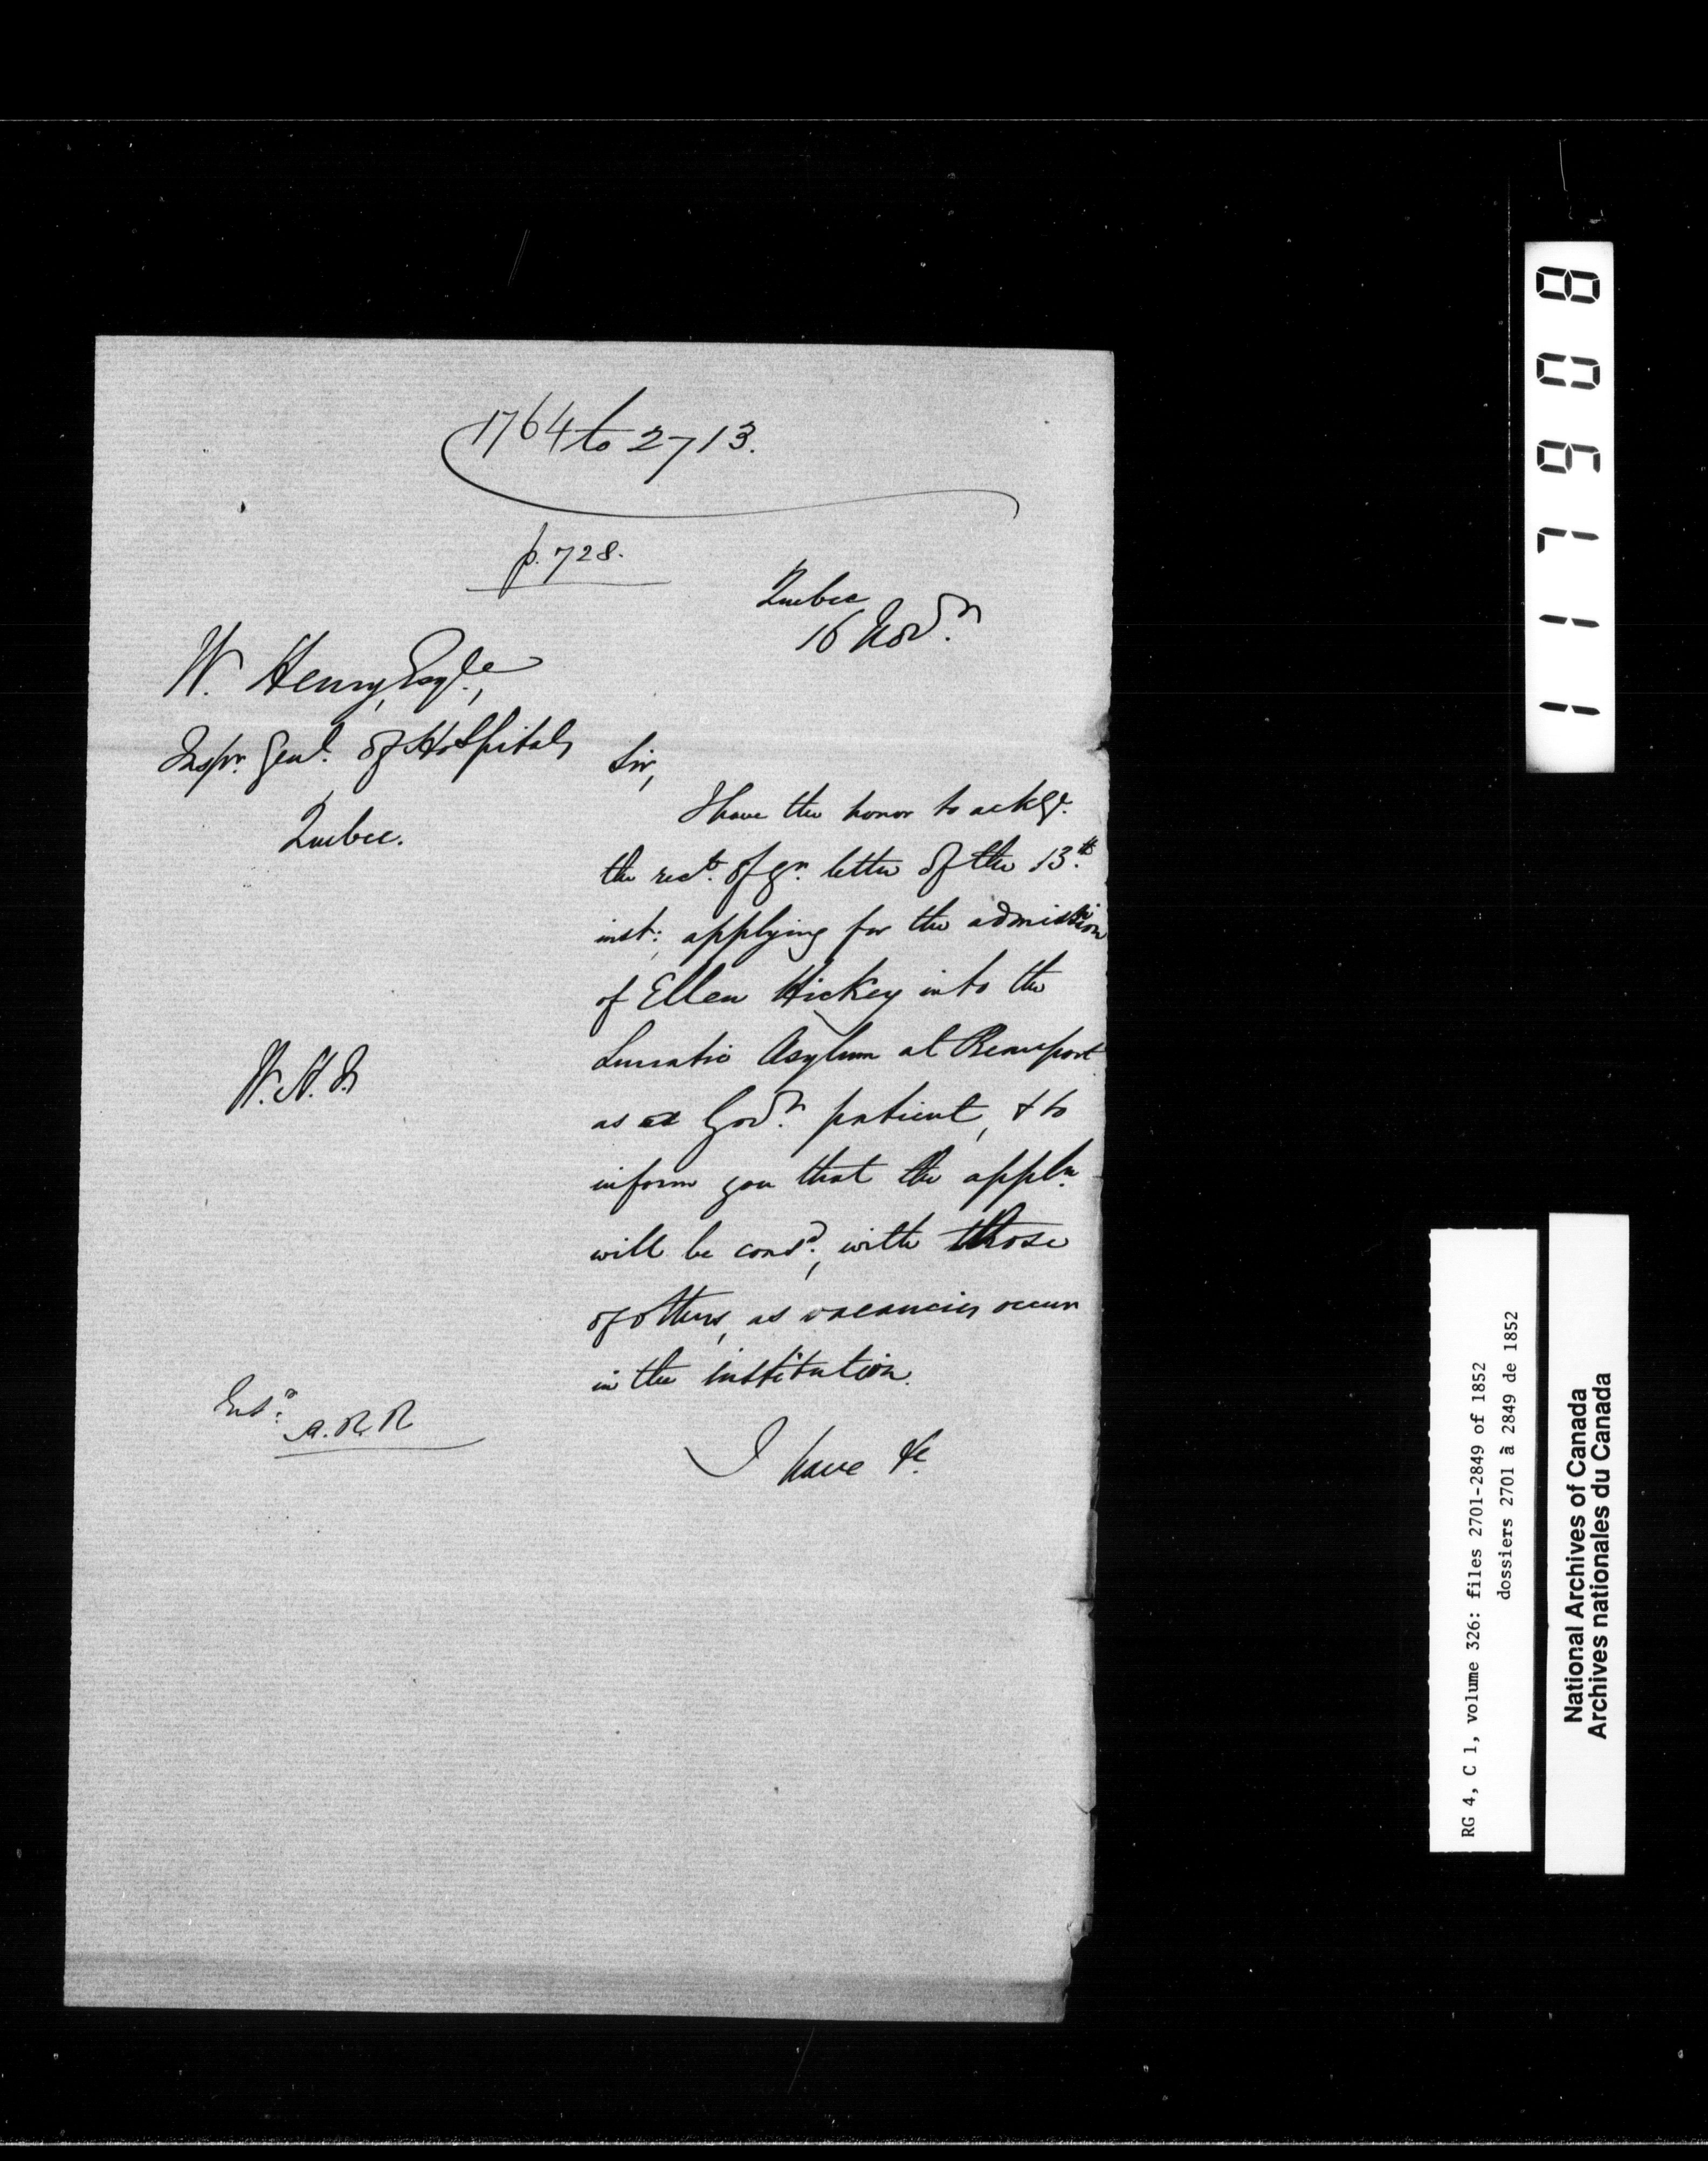 1764 to 2713.
p. 728.
Quebec
16 Novr.
W. Henry, Esqre.,
Inspr. Genl. of Hospitals
Quebec.
Sir,
I have the honor to ackge.
the rect. of yr. letter of the 13th.
inst: applying for the admission
of Ellen Hickey into the
Lunatic Asylum at Beauport
as a Govt. patient, & to
inform you that the appln.
will be consd., with those
of others, as vacancies occur
in the institution.
I have &c.
Entd.
A.R.R
8 0 6 7 1 1
RG 4, C 1, volume 326: files 2701-2849 of 1852
dossiers 2701 à 2849 de 1852
National Archives of Canada
Archives nationales du Canada